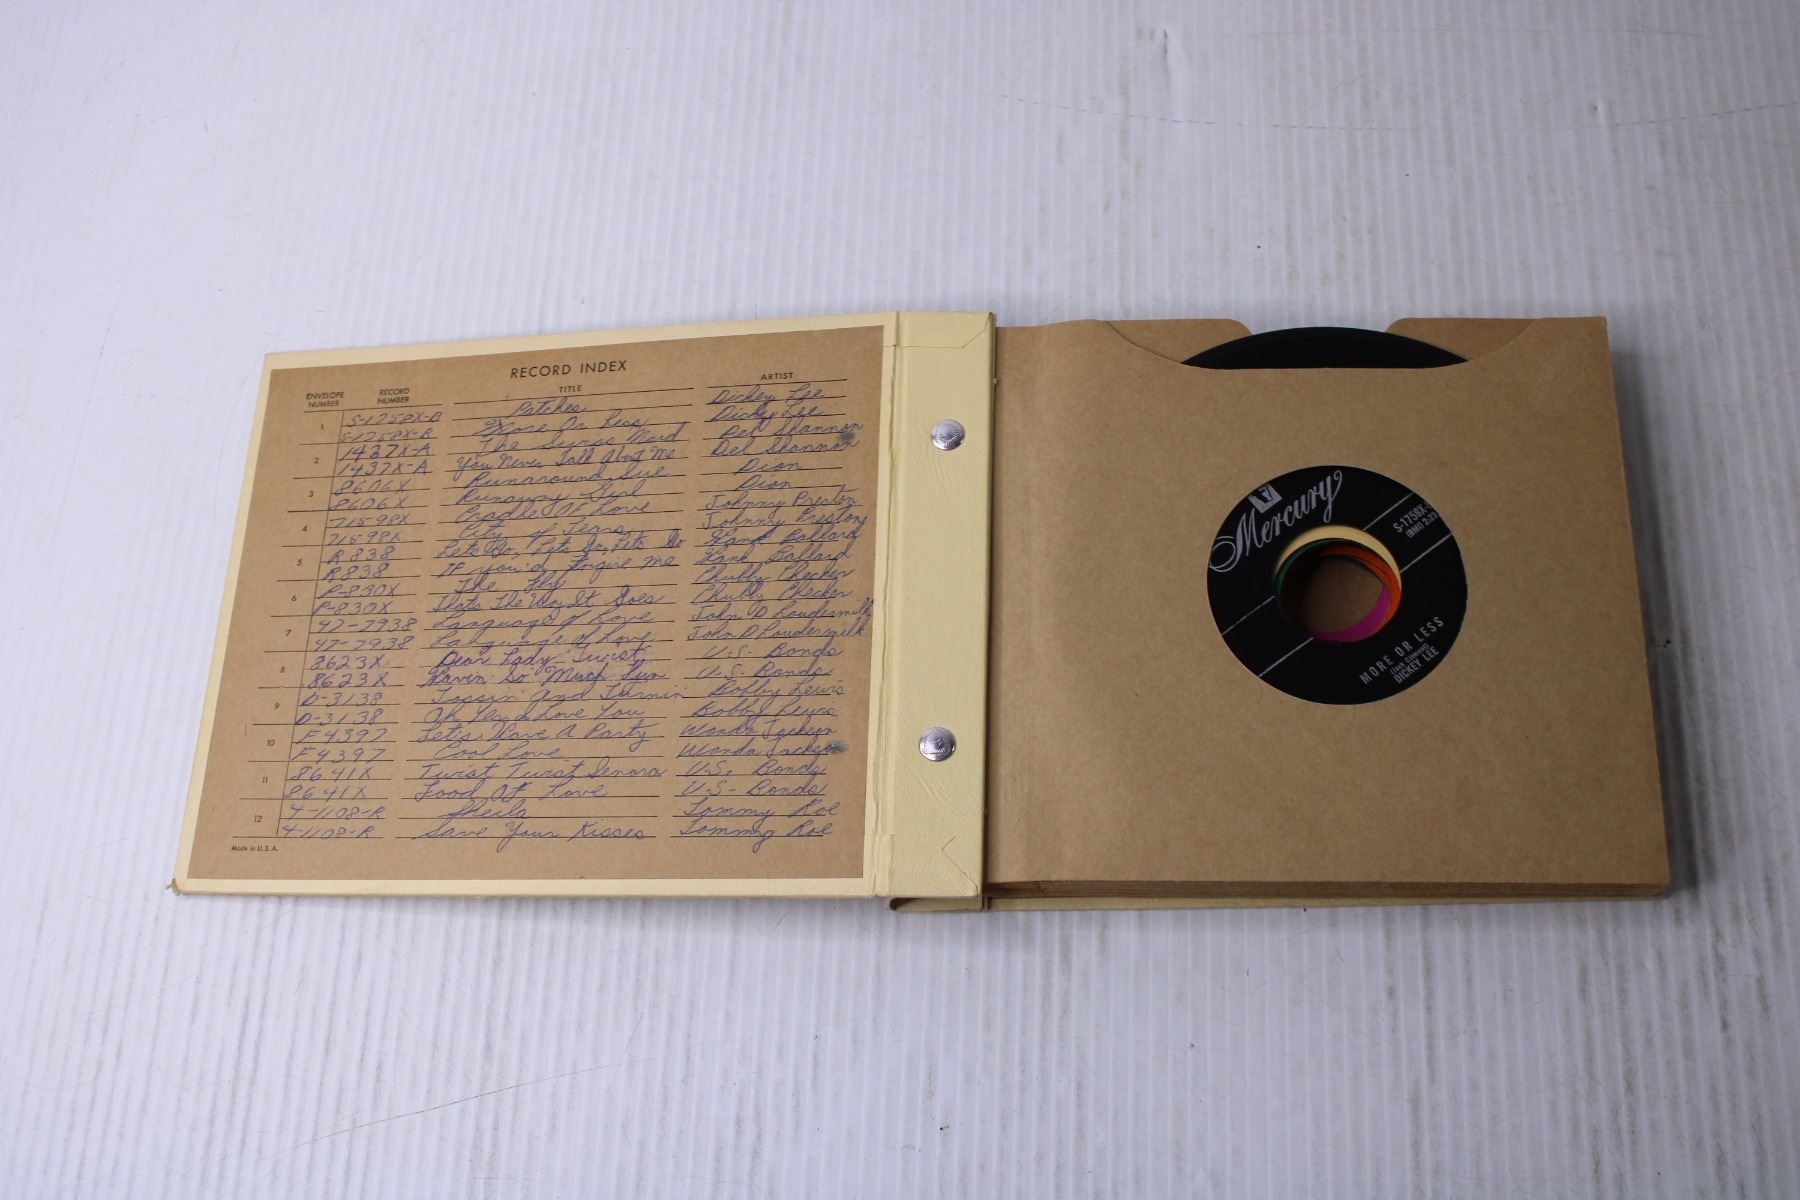 RECORD INDEX
ENVELOPE NUMBER RECORD NUMBER TITLE ARTIST
1 S-1758X-B Patches Dickey Lee
S-1758X-R More Or Less Dickey Lee
2 1437X-A The Swiss Maid Del Shannon
1437X-A You Never Talk About Me Del Shannon
3 8606X Runaround Sue Dion
8606X Runaway Girl Dion
4 71598X Cradle Of Love Johnny Preston
71598X City of Tears Johnny Preston
5 R 838 Lets Go, Lets Go, Lets Go Hank Ballard
R 838 If you'd Forgive me Hank Ballard
6 P-830X The Fly Chubby Checker
P-830X Thats The Way It Goes Chubby Checker
7 47-7938 Language of Love John D Loudermilk
47-7938 Language of Love John D Loudermilk
8 8623X Dear Lady Twist U.S. Bonds
8623X Havin So Much Fun U.S. Bonds
9 D-3138 Tossin And Turnin Bobby Lewis
D-3138 Oh Yes I Love You Bobby Lewis
10 F 4397 Let's Have A Party Wanda Jackson
F 4397 Cool Love Wanda Jackson
11 8641X Twist Twist Senora U.S. Bonds
8641X Food Of Love U.S. Bonds
12 4-1108-R Sheila Tommy Roe
4-1108-R Save Your Kisses Tommy Roe
Made in U.S.A.
Mercury
S-1758X
2:23
MORE OR LESS
(Jack Clement)
DICKEY LEE